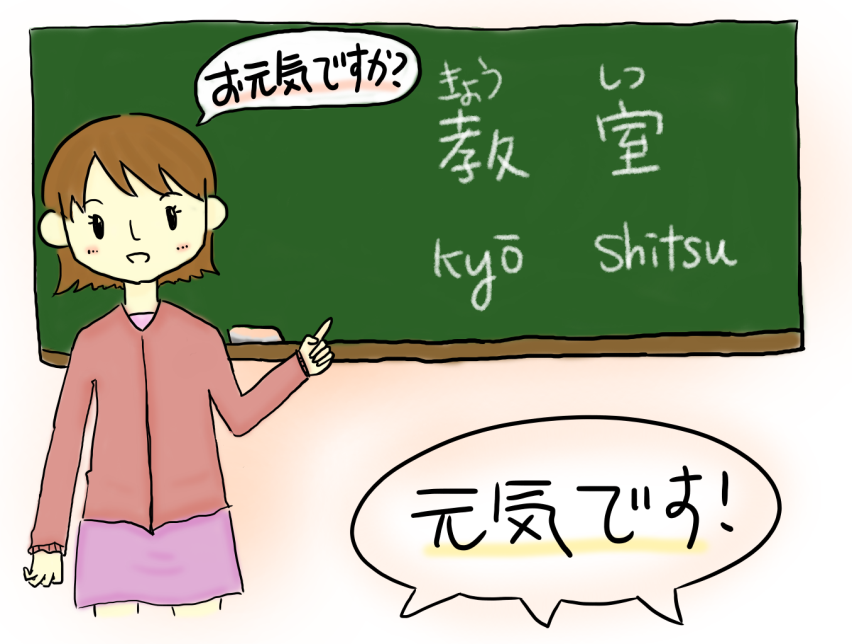 お元気ですか?
きょう しつ
教室
kyō shitsu
元気です!